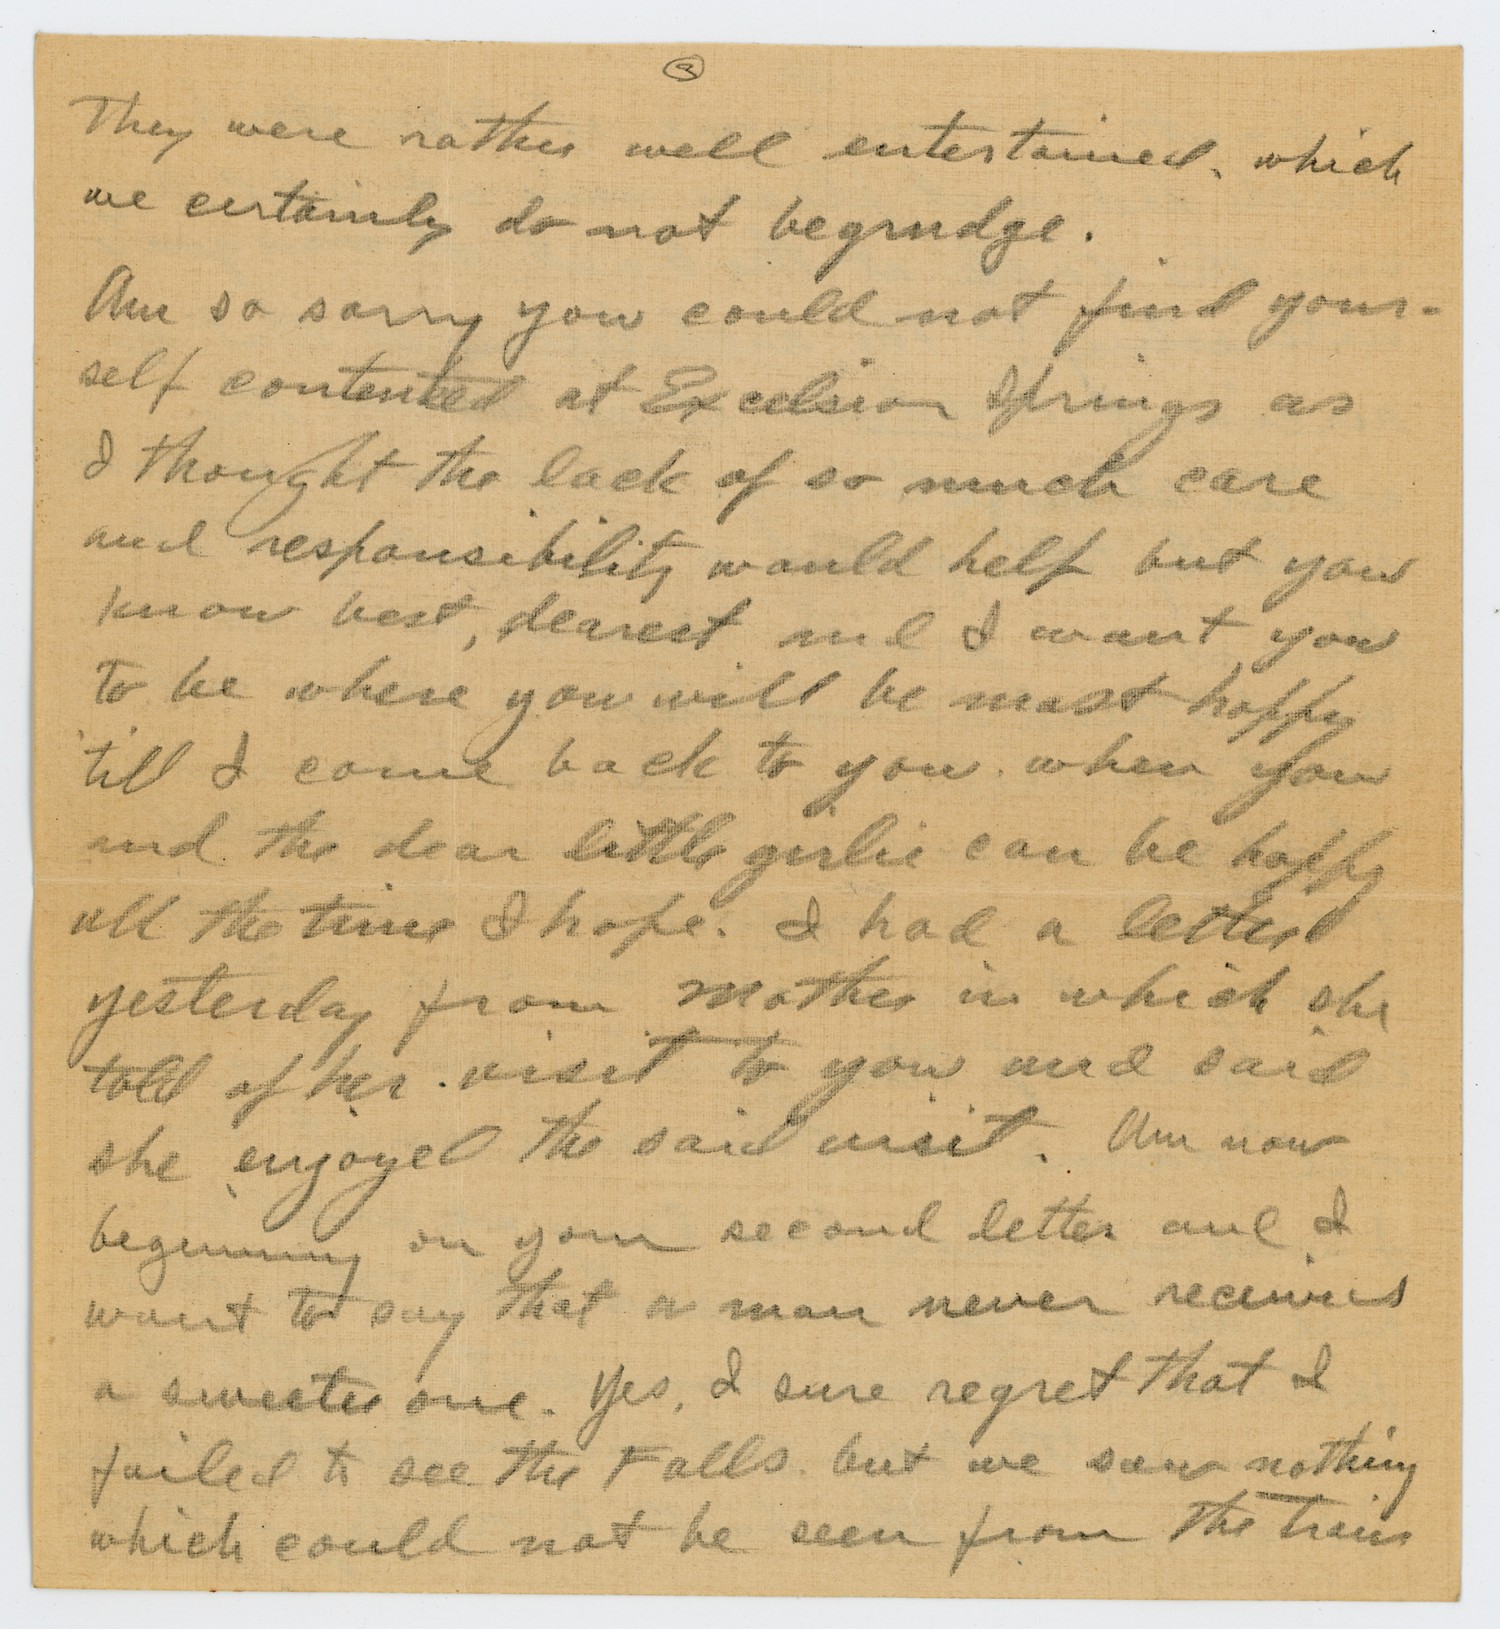 3
They were rather well entertained, which
we certainly do not begrudge.
Am so sorry you could not find your-
self contented at Excelsior Springs as
I thought the lack of so much care
and responsibility would help but you
know best, dearest and I want you
to be where you will be most happy
'till I come back to you. when you
and the dear little girlie can be happy
all the time I hope. I had a letter
yesterday from Mother in which she
told of her visit to you and said
she enjoyed the said visit. Am now
beginning on your second letter and I
want to say that a man never receives
a sweeter one. Yes, I sure regret that I
failed to see the Falls. but we saw nothing
which could not be seen from the train